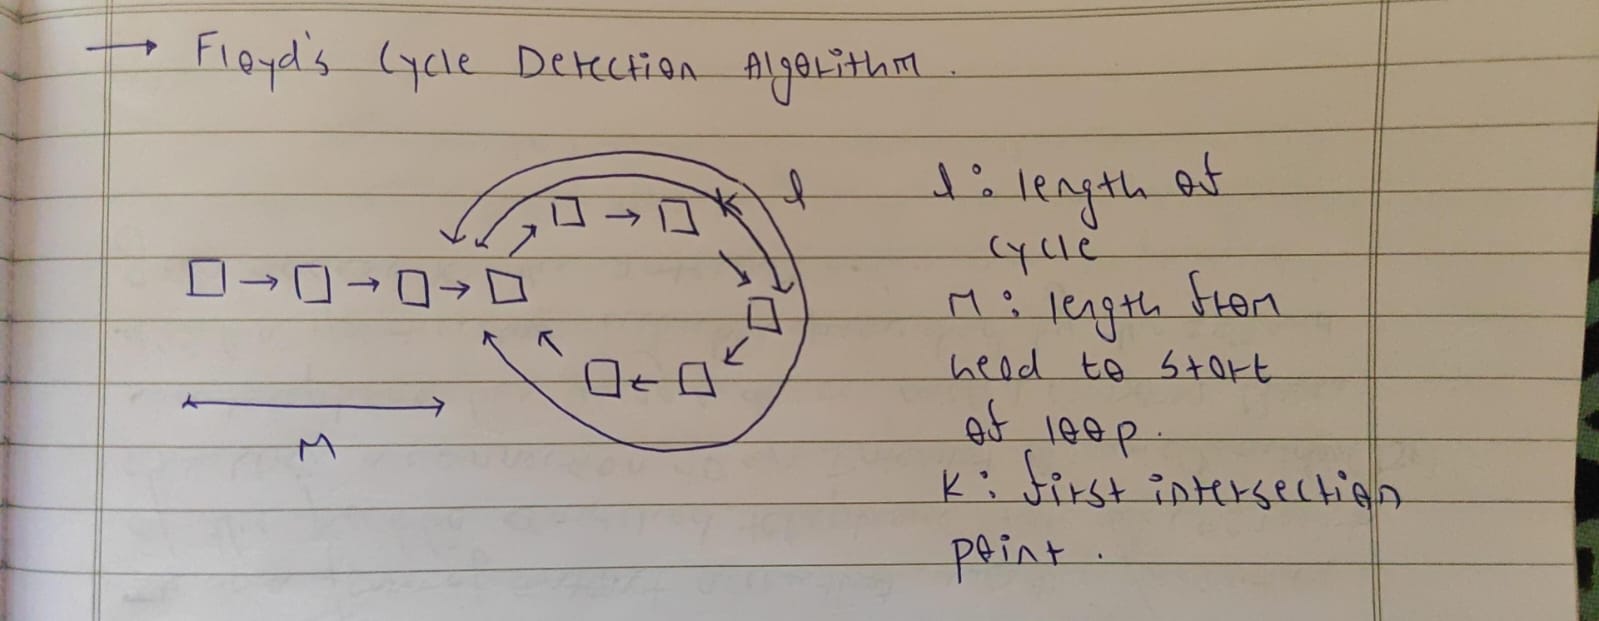 → Floyd's Cycle Detection Algorithm.
K
l
M
l: length of
cycle
M: length from
head to start
of loop.
K: first intersection
point.